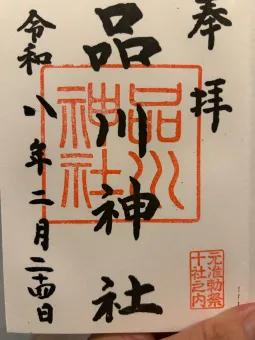 奉拝
品川神社
品川神社
令和八年二月二十四日
元准勅祭
十社之内